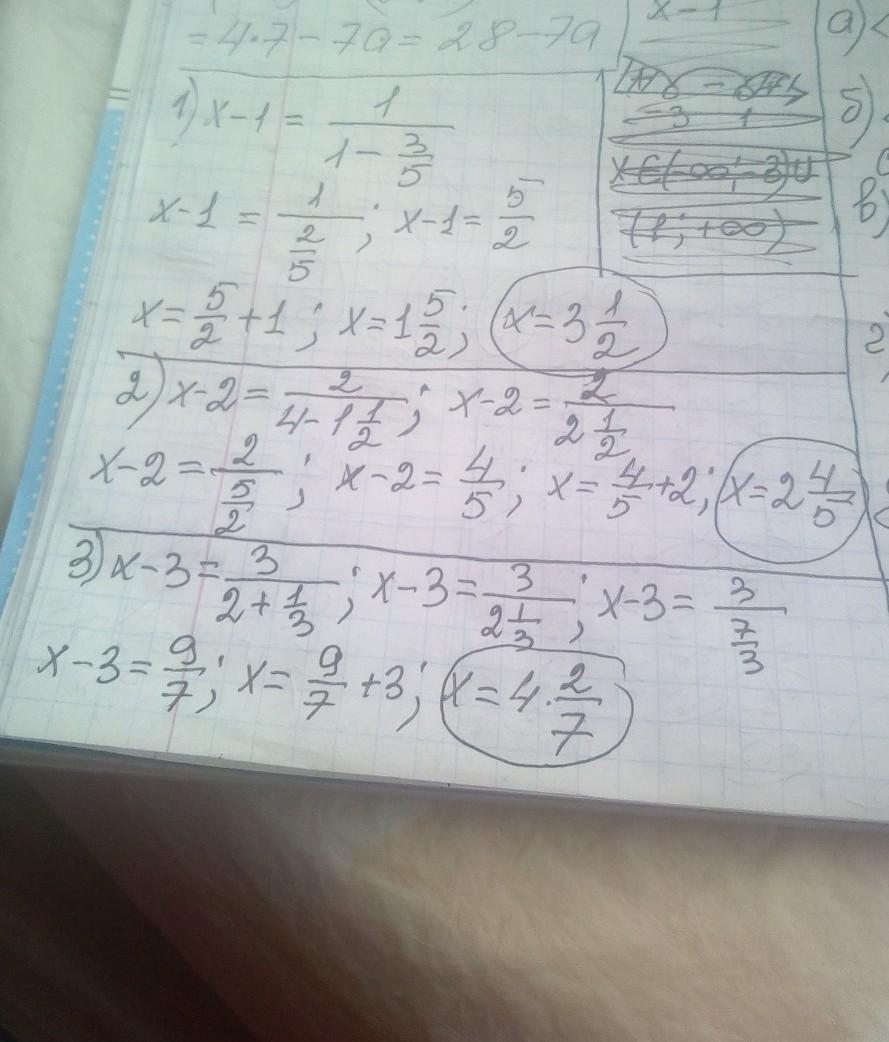 = 4·7 − 7a = 28 − 7a
x − 1
a) <
б)
в)
г)
1) x − 1 = 1/(1 − 3/5)
x − 1 = 1/(2/5); x − 1 = 5/2
x = 5/2 + 1; x = 1 5/2; x = 3 1/2
2) x − 2 = 2/(4 − 1 1/2); x − 2 = 2/(2 1/2)
x − 2 = 2/(5/2); x − 2 = 4/5; x = 4/5 + 2; x = 2 4/5
3) x − 3 = 3/(2 + 1/3); x − 3 = 3/(2 1/3); x − 3 = 3/(7/3)
x − 3 = 9/7; x = 9/7 + 3; x = 4·2/7
−3 1
x ∈ (−∞; −3) ∪
(1; +∞)